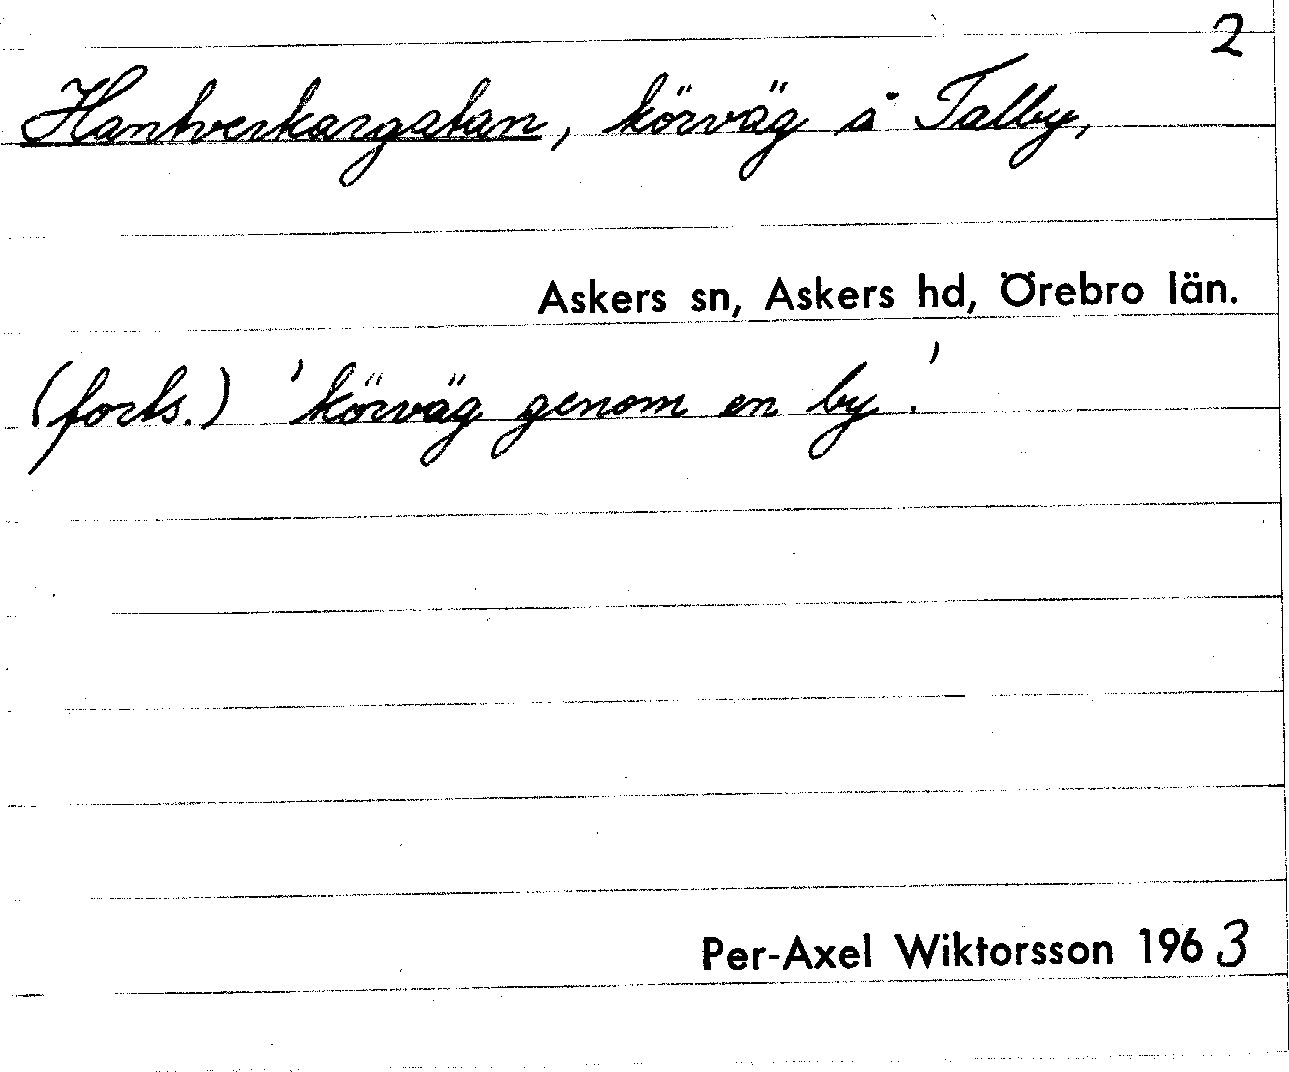 2
Hantverkargatan, körväg å Talby,
Askers sn, Askers hd, Örebro län.
(forts.) 'körväg genom en by.'
Per-Axel Wiktorsson 1963